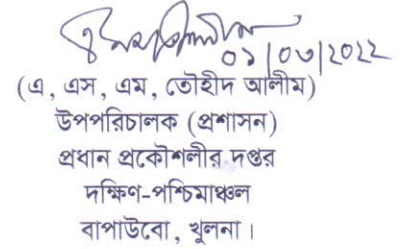 ০১/০৩/2022
(এ, এস, এম, তৌহীদ আলীম)
উপপরিচালক (প্রশাসন)
প্রধান প্রকৌশলীর দপ্তর
দক্ষিণ-পশ্চিমাঞ্চল
বাপাউবো, খুলনা।